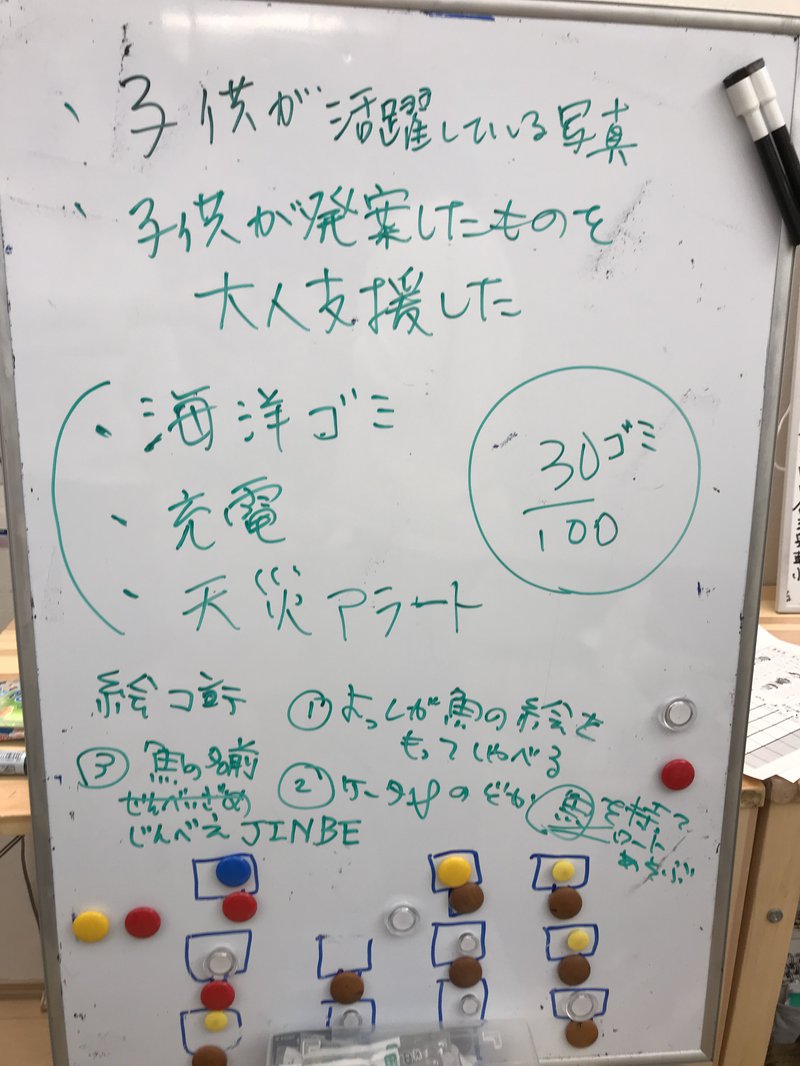 ・子供が活躍している写真
・子供が発案したものを
大人支援した
・海洋ゴミ
・充電
・天災アラート
30ゴミ
100
絵コンテ
① よっしが魚の絵を
もってしゃべる
③ 魚の名前
ぜんべいざめ
じんべえ JINBE
②
魚を持って